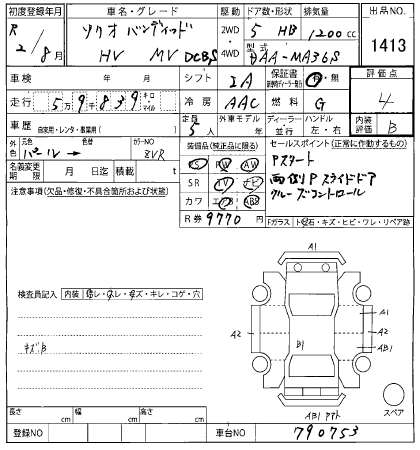 初度登録年月 車名・グレード 駆動 ドア数・形状 排気量 出品NO.
R 2/8月 ソリオ バンディッド 2WD 5 HB 1200cc 1413
HV MV DCBS 4WD 型式 DAA-MA36S
車検 年 月 シフト IA 保証書 有・無 評価点
走行 5万9千839キロ マイル 冷房 AAC 燃料 G 4
車歴 自家用・レンタ・事業用( ) 定員 5人 外車モデル 年 ディーラー 並行 ハンドル 左・右 内装評価 B
外色 元色 パール 色替 カラーNO ZVR 装備品(純正品に限る) セールスポイント(正常に作動するもの)
名義変更期限 月 日迄 積載 t PS PW AW Pスタート
注意事項(欠品・修復・不具合箇所および状態) SR TV ナビ 両側Pスライドドア
カワ エアB ABS クルーズコントロール
R券 9770円 Fガラス トビ石・キズ・ヒビ・ワレ・リペア跡
A1
検査員記入 内装 スレ・キズ・キレ・コゲ・穴
A1
A2 A2
キズB B1 AB1
AB1 スペア
長さ cm 幅 cm 高さ cm
登録NO 車台NO 790753